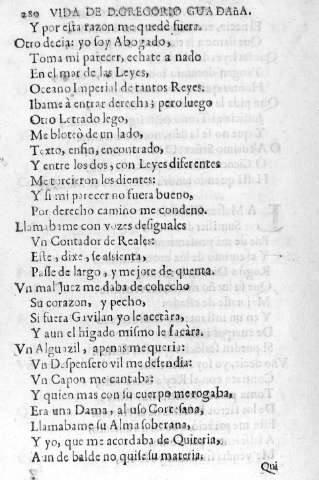 280 VIDA DE D.GREGORIO GUADAÑA.
Y por esta razon me quedè fuera.
Otro decia: yo soy Abogado,
Toma mi parecer, echate a nado
En el mar de las Leyes,
Oceano Imperial de tantos Reyes.
Ibame à entrar derecha; pero luego
Otro Letrado lego,
Me bloteò de un lado,
Texto, enfin, encontrado,
Y entre los dos, con Leyes diferentes
Me torcieron los dientes:
Y si mi parecer no fuera bueno,
Por derecho camino me condeno.
Llamabame con vozes desiguales
Vn Contador de Reales:
Este, dixe, se assienta,
Passe de largo, y mejore de quenta.
Vn mal Juez me daba de cohecho
Su corazon, y pecho,
Si fuera Gavilan yo le acetàra,
Y aun el higado mismo le sacàra.
Vn Alguazil, apenas me queria:
Vn Despensero vil me defendia:
Vn Capon me cantaba:
Y quien mas con su cuerpo me rogaba,
Era una Dama, al uso Cortesana,
Llamabame su Alma soberana,
Y yo, que me acordaba de Quiteria,
Aun de balde no quise su materia.
Qui